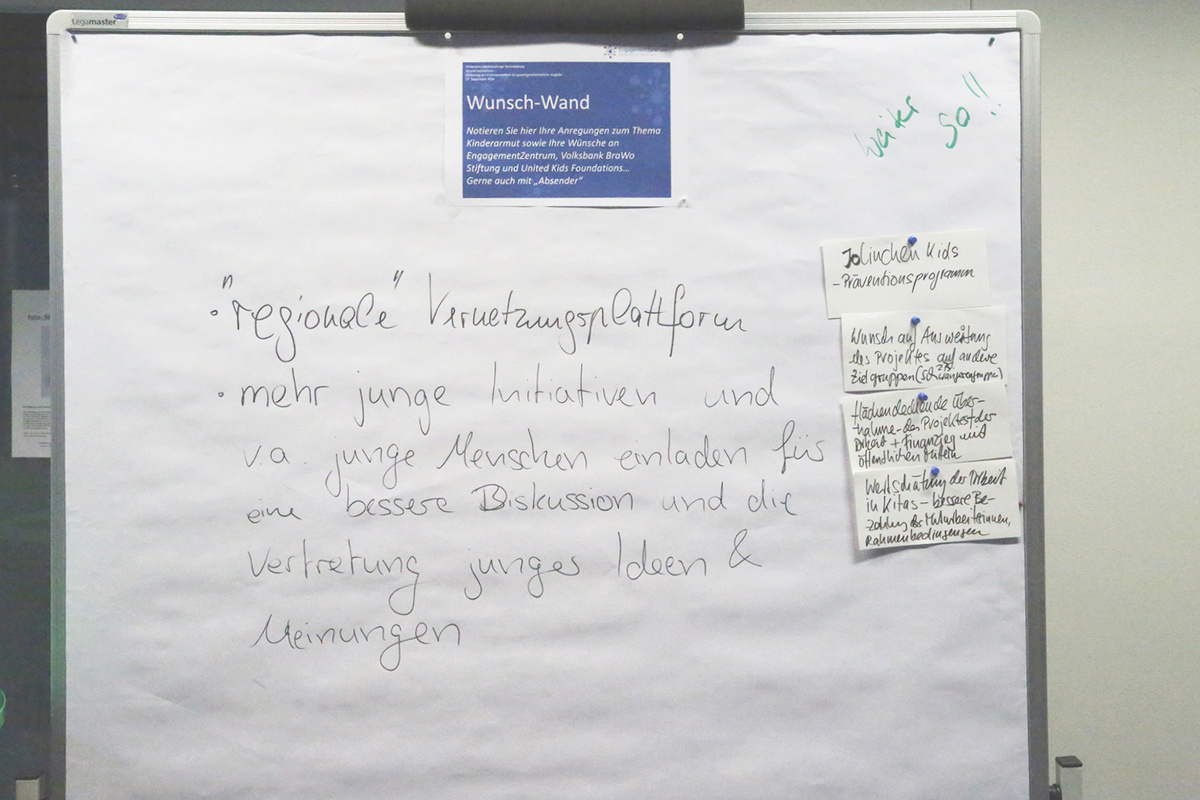 legamaster
Wunsch-Wand
Notieren Sie hier Ihre Anregungen zum Thema
Kinderarmut sowie Ihre Wünsche an
EngagementZentrum, Volksbank BraWo
Stiftung und United Kids Foundations...
Gerne auch mit „Absender“
weiter so!!
• "regionale" Vernetzungsplattform
• mehr junge Initiativen und
v.a. junge Menschen einladen für
eine bessere Diskussion und die
Vertretung junges Ideen &
Meinungen
JoLinchen Kids
- Präventionsprogramm
Wunsch auf Ausweitung
des Projektes auf andere
Zielgruppen (z.B.
Flächendeckende Über-
nahme des Projektes der
+ Finanzier mit
öffentlichen Mitteln
Wertschätzung der Arbeit
in Kitas - bessere Be-
zahlung des Mitarbeiterinnen,
Rahmenbedingungen